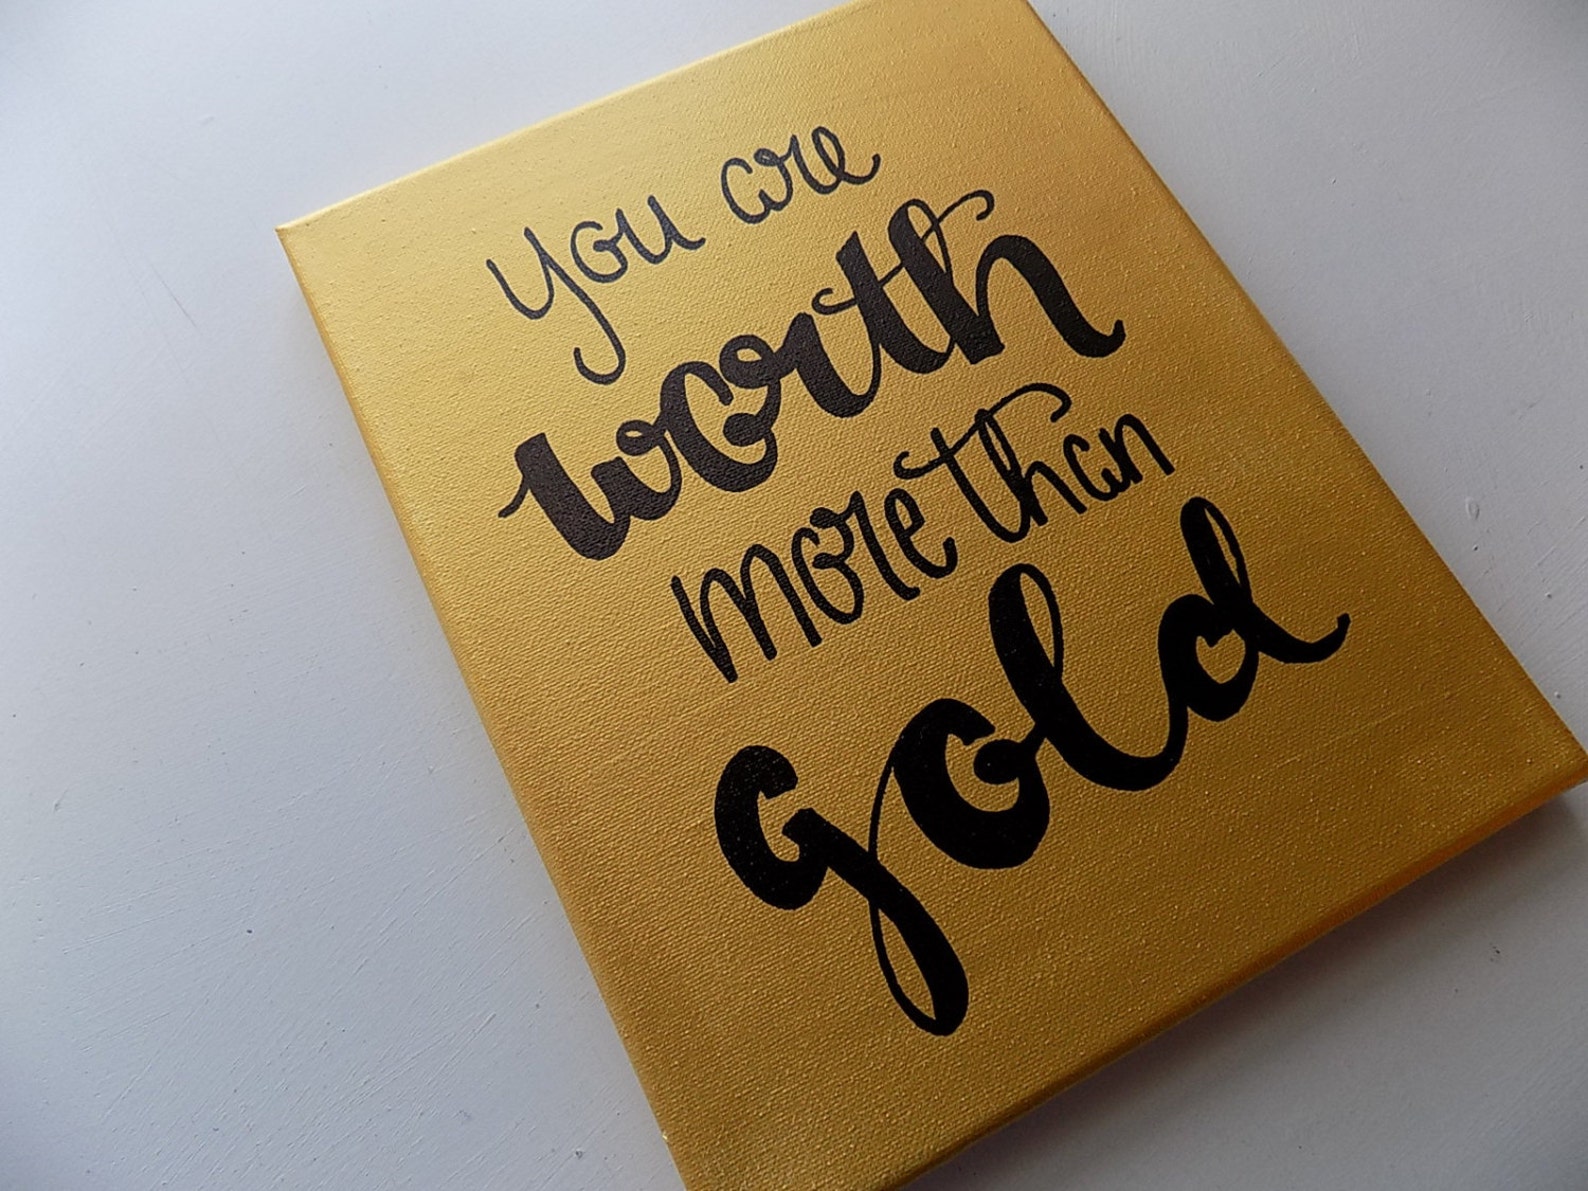 you are
worth
more than
gold